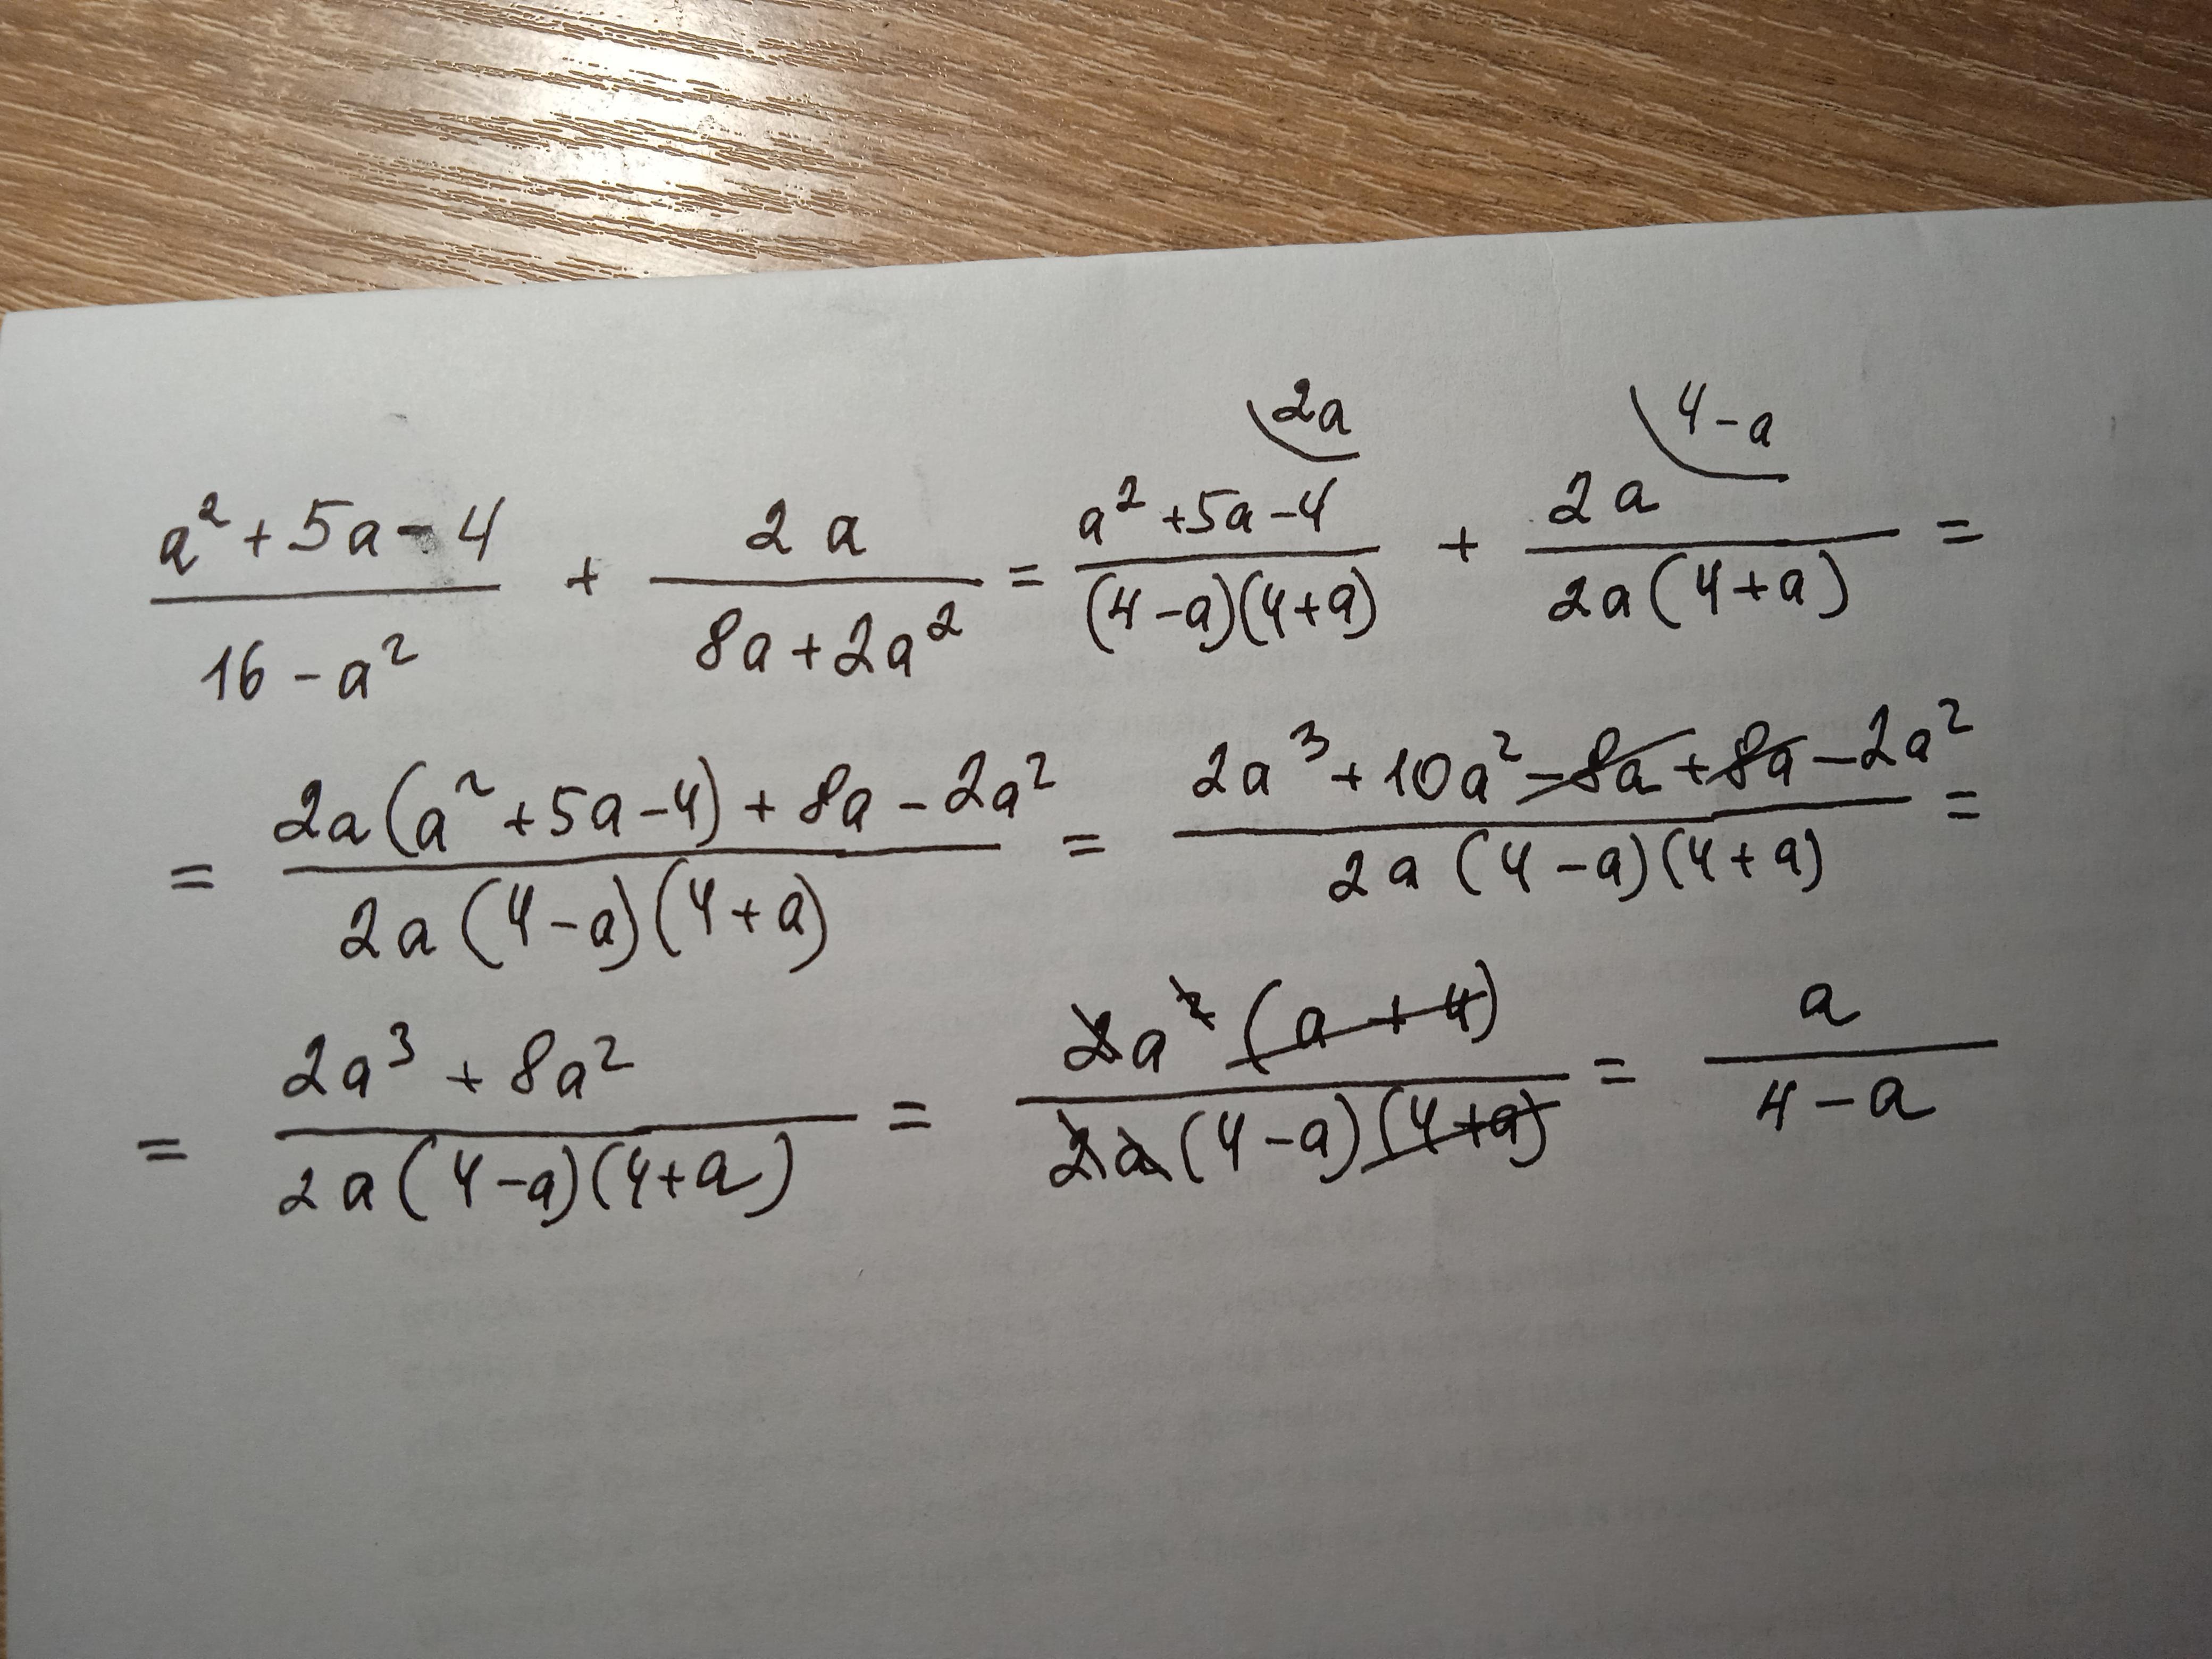 (a² + 5a - 4)/(16 - a²) + 2a/(8a + 2a²) = (a² + 5a - 4)/((4 - a)(4 + a)) \2a + 2a/(2a(4 + a)) \4 - a =
= (2a(a² + 5a - 4) + 8a - 2a²)/(2a(4 - a)(4 + a)) = (2a³ + 10a² - 8a + 8a - 2a²)/(2a(4 - a)(4 + a)) =
= (2a³ + 8a²)/(2a(4 - a)(4 + a)) = (2a²(a + 4))/(2a(4 - a)(4 + a)) = a/(4 - a)